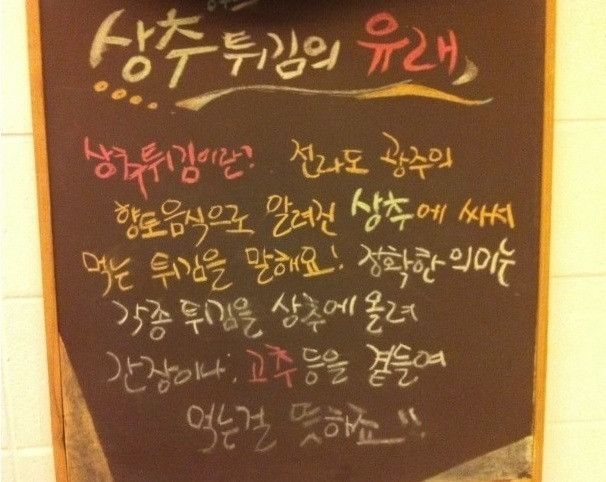 상추 튀김의 유래
상추튀김이란? 전라도 광주의
향토음식으로 알려진 상추에 싸서
먹는 튀김을 말해요! 정확한 의미는
각종 튀김을 상추에 올려
간장이나, 고추 등을 곁들여
먹는걸 뜻해죠~!!